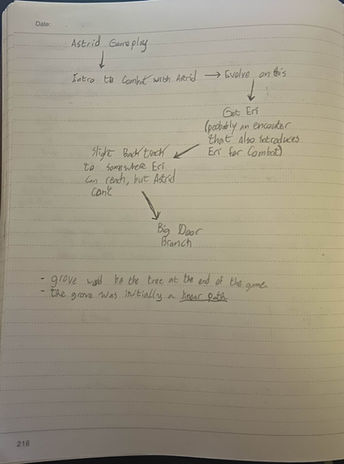 Date:
Astrid Gameplay
Intro to Combat with Astrid → Evolve on this
Get Eri
(probably an encounter
that also introduces
Eri for Combat)
Slight Back track
to somewhere Eri
can reach, but Astrid
can't
Big Door
Branch
- grove would be the tree at the end of the game
- the grove was initially a linear path
216